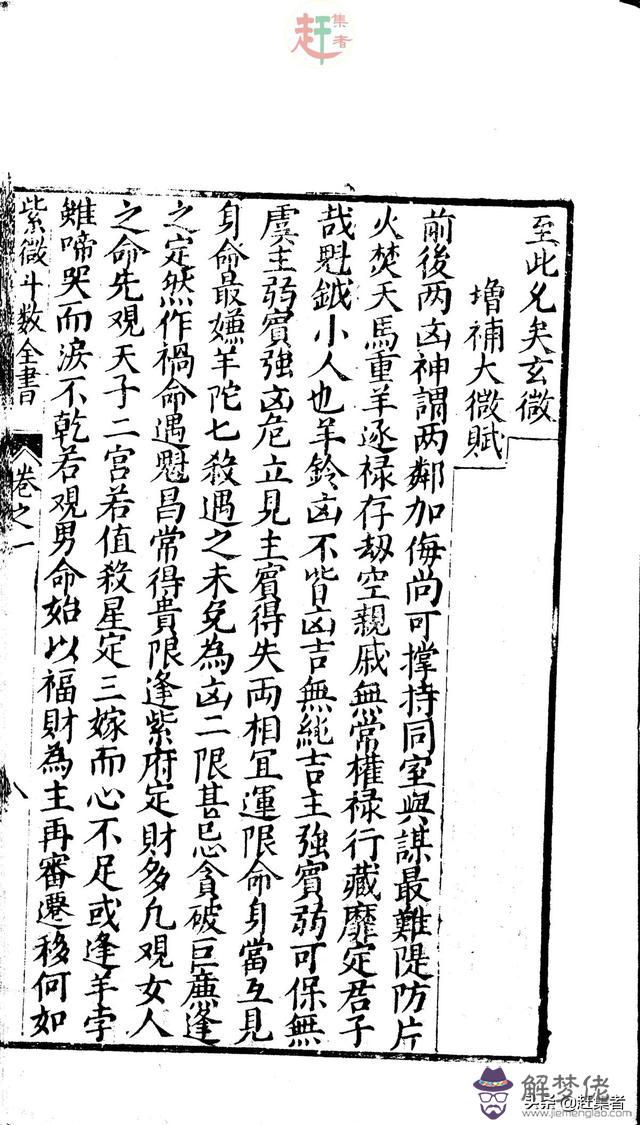 赶集者
至此允矣玄微
增補太微賦
前後两凶神謂两鄰加侮尚可撑持同室與謀最難隄防片
火焚天馬重羊逐禄存劫空親戚無常權禄行藏靡定君子
哉魁鉞小人也羊鈴凶不皆凶吉無純吉主強賓弱可保無
虞主弱賓強凶危立見主賓得失两相宜運限命身當互見
身命最嫌羊陀七殺遇之未免為凶二限甚忌貪破巨廉逢
之定然作禍命遇魁昌常得貴限逢紫府定財多凡觀女人
之命先觀夫子二宮若值殺星定三嫁而心不足或逢羊孛
雖啼哭而淚不乾若觀男命始以福財為主再審遷移何如
紫微斗数全書 卷之一
解梦佬
www.jiemenglao.com
头条@赶集者